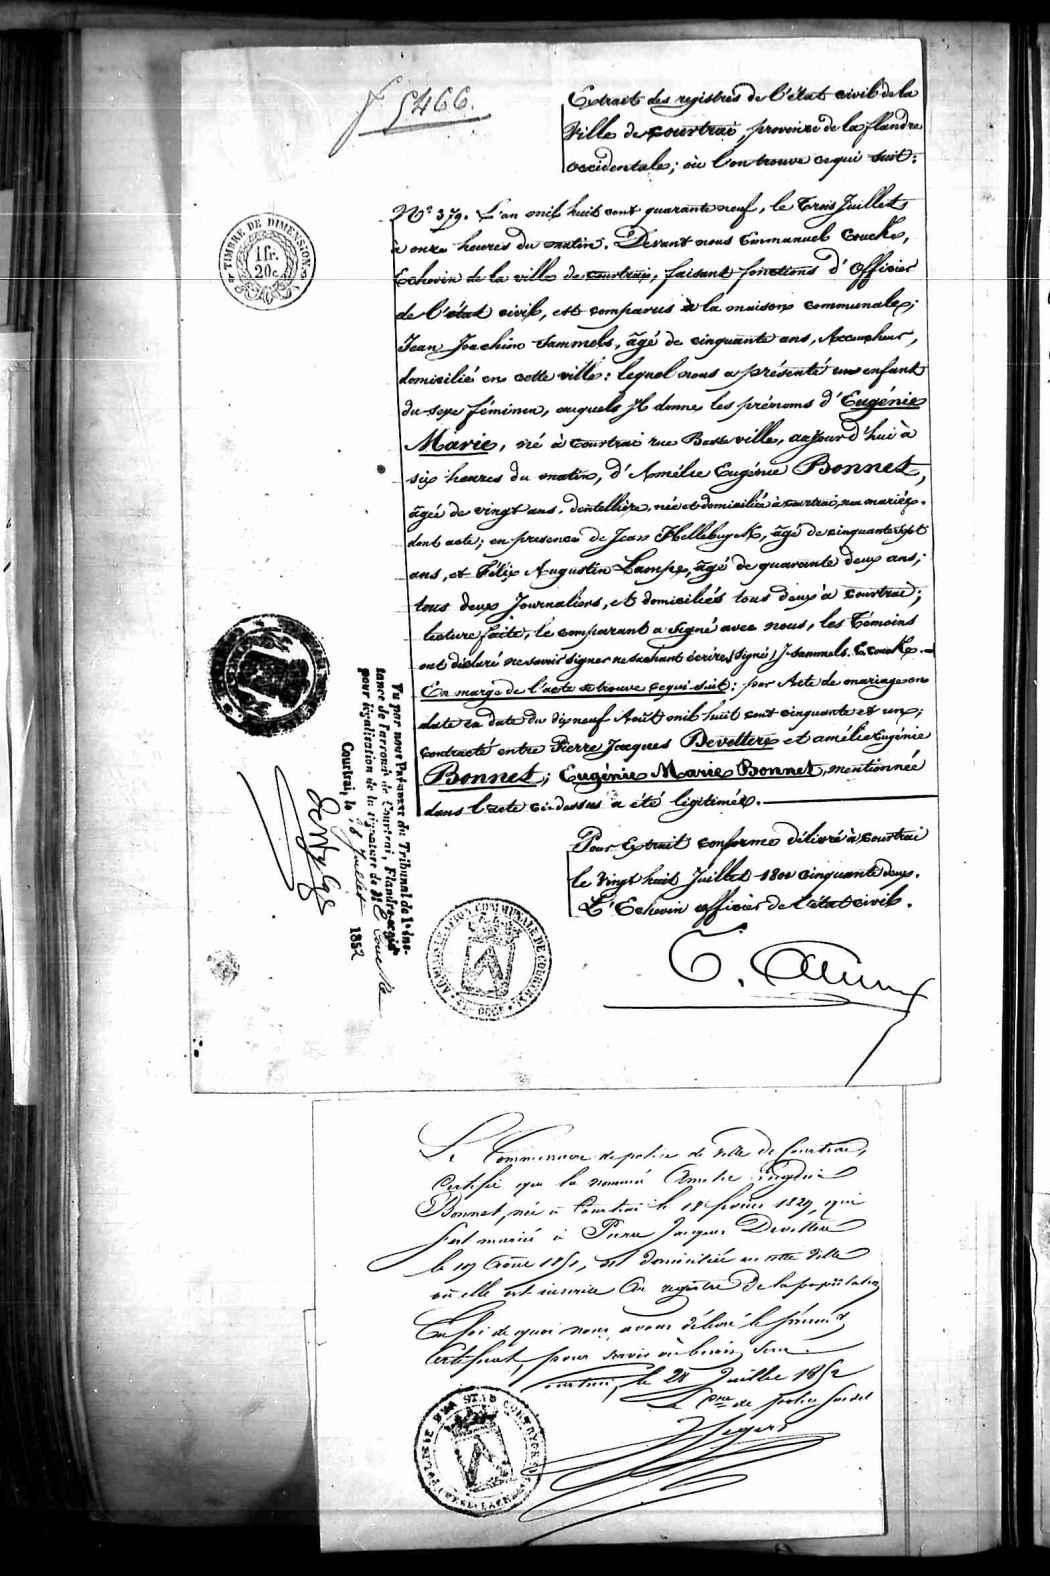 5466.
Extrait des registres de l'état civil de la
Ville de Courtrai, province de la flandre
occidentale; où l'on trouve ce qui suit:
N.° 379. L'an mil huit cent quarante neuf, le trois Juillet
à onze heures du matin. Devant nous Emmanuel Coucke,
Echevin de la ville de Courtrai, faisant fonctions d'Officier
de l'état civil, est comparus à la maison communale;
Jean Joachim Sammels, âgé de cinquante ans, Accoucheur,
domicilié en cette ville: lequel nous a présenté un enfant
du sexe féminin, auquels Il donne les prénoms d'Eugénie
Marie, né à Courtrai rue Basse ville, aujourd'hui à
six heures du matin, d'Amélie Eugénie Bonnet,
âgée de vingt ans, dentellière, née et domiciliée à Courtrai, non mariée.
dont acte; en présence de Jean Hellebuyck, âgé de cinquante sept
ans, et Félix Augustin Lampe, âgé de quarante deux ans;
tous deux Journaliers, et domiciliés tous deux à Courtrai;
lecture faite, le comparant a signé avec nous, les Témoins
ont déclaré ne savoir signer ne sachant écrire, (signé) J. Sammels. E. Coucke.
En marge de l'acte se trouve ce qui suit: par Acte de mariage en
date en date du dix neuf Août mil huit cent cinquante et un;
contracté entre Pierre Jacques Devettere et amélie Eugénie
Bonnet; Eugénie Marie Bonnet, mentionnée
dans l'acte ci-dessus a été légitimée.
Pour Extrait conforme délivré à Courtrai
le Vingt huit Juillet 1800 cinquante deux.
L'Echevin officier de l'état civil.
TIMBRE DE DIMENSION
1 fr.
20 c.
Vu par nous Président du Tribunal de 1re ins-
tance de l'arrond.t de Courtrai, Flandre occid.le
pour légalisation de la signature de M. E. Coucke
Courtrai, le 28 Juillet 1852
ADMINISTRATION COMMUNALE DE COURTRAI
1830
Le Commissaire de police de Ville de Courtrai,
Certifie que la nommée Amelie Eugénie
Bonnet, née à Courtrai le 18 février 1829, qui
s'est mariée à Pierre Jacques Devettere
le 19 Août 1851, est domiciliée en cette Ville
où elle est inscrite au registre de la population
En foi de quoi nous avons délivré le présent
Certificat, pour servir où besoin sera.
Courtrai, le 28 Juillet 1852
Le Cre de police
Segers
POLICIE DER STAD CORTRYK